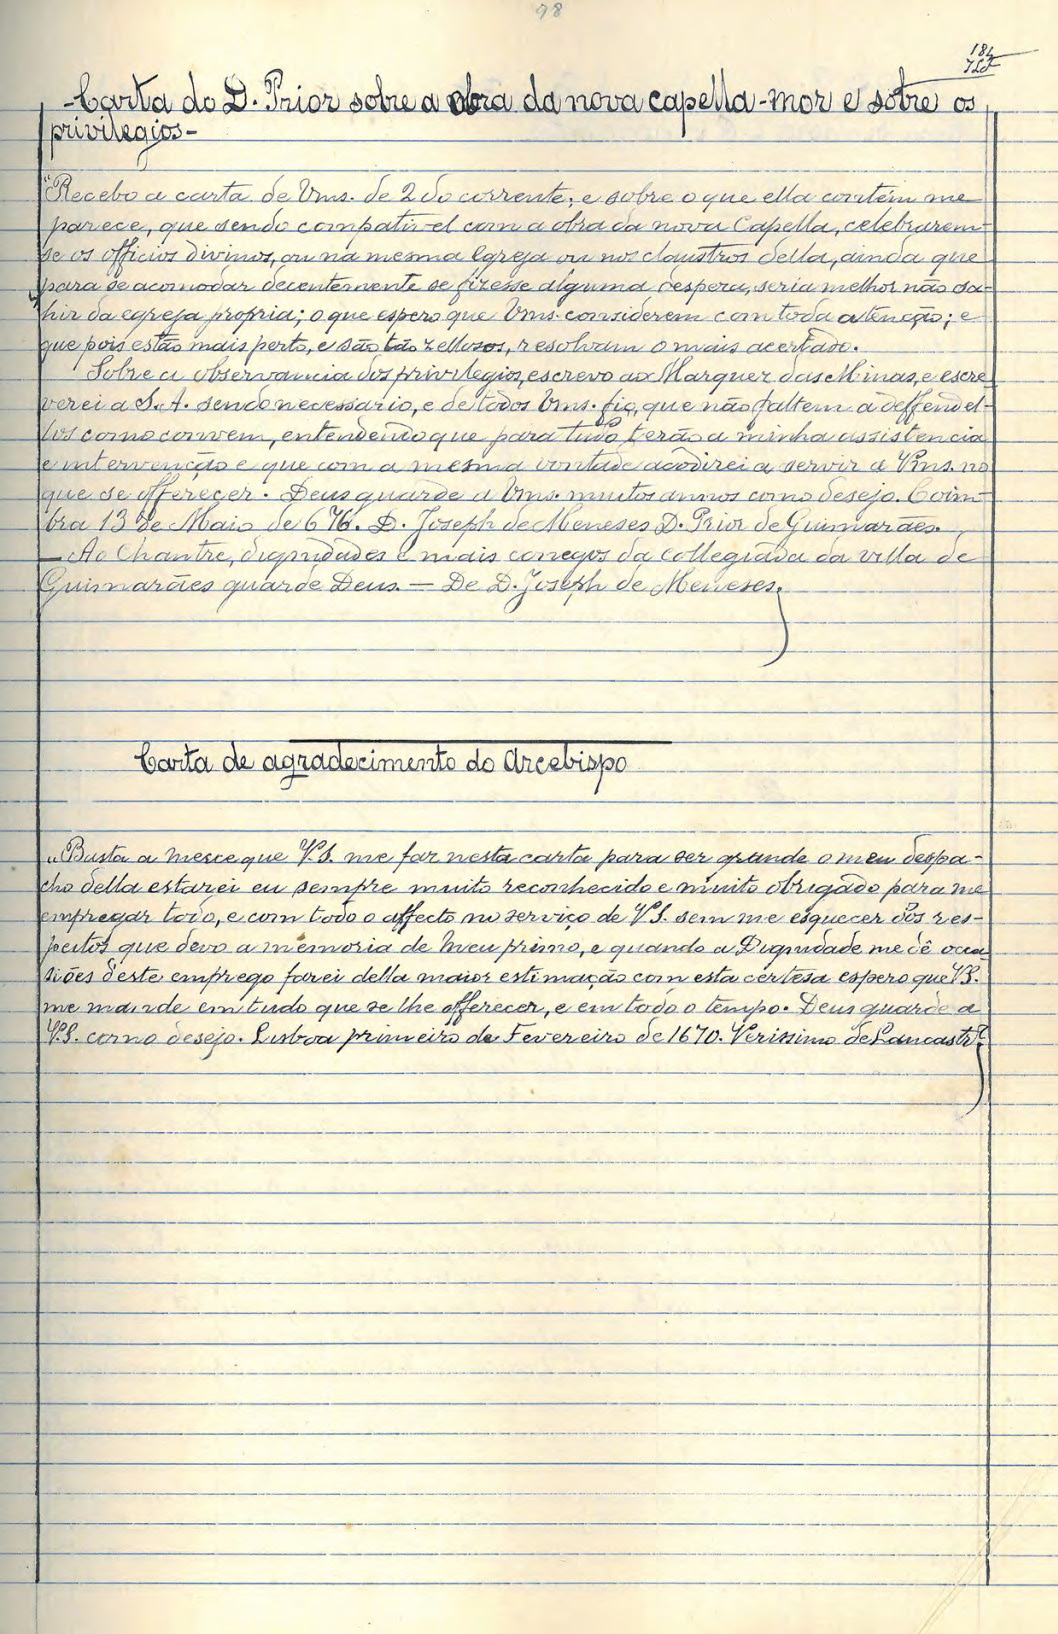 98
- Carta do D. Prior sobre a obra da nova capella-mor e sobre os
privilegios -
"Recebo a carta de Vms. de 2 do corrente; e sobre o que ella contém me
parece, que sendo compativel com a obra da nova Capella, celebrarem-
se os officios divinos, ou na mesma Egreja ou nos claustros della, ainda que
para se acomodar decentemente se fizesse alguma despeza, seria melhor não sa-
hir da egreja propria; o que espero que Vms. considerem com toda atenção; e
que pois estão mais perto, e são tão zellosos, resolvam o mais acertado.
Sobre a observancia dos privilegios, escrevo ao Marquez das Minas, e escre
verei a S. A. sendo necessario, e de todos Vms. fio, que não faltem a deffendel-
los como convem, entendendo que para tudo terão a minha assistencia
e intervenção e que com a mesma vontade acodirei a servir a Vms. no
que se offerecer. Deus guarde a Vms. muitos annos como desejo. Coim-
bra 13 de Maio de 676. D. Joseph de Meneses D. Prior de Guimarães.
— Ao Chantre, dignidades e mais conegos da collegiada da villa de
Guimarães guarde Deus. — De D. Joseph de Meneses.
Carta de agradecimento do Arcebispo
"Basta a merce que V.S. me faz nesta carta para ser grande o meu despa-
cho della estarei eu sempre muito reconhecido e muito obrigado para me
empregar todo, e com todo o affecto no serviço de V.S. sem me esquecer dos res-
peitos que devo a memoria de meu primo, e quando a Dignidade me dê oca
siões deste emprego farei della maior estimação com esta certesa espero que V.S.
me mande em tudo que se lhe offerecer, e em todo o tempo. Deus guarde a
V.S. como desejo. Lisboa primeiro de Fevereiro de 1670. Verissimo de Lancastr.e